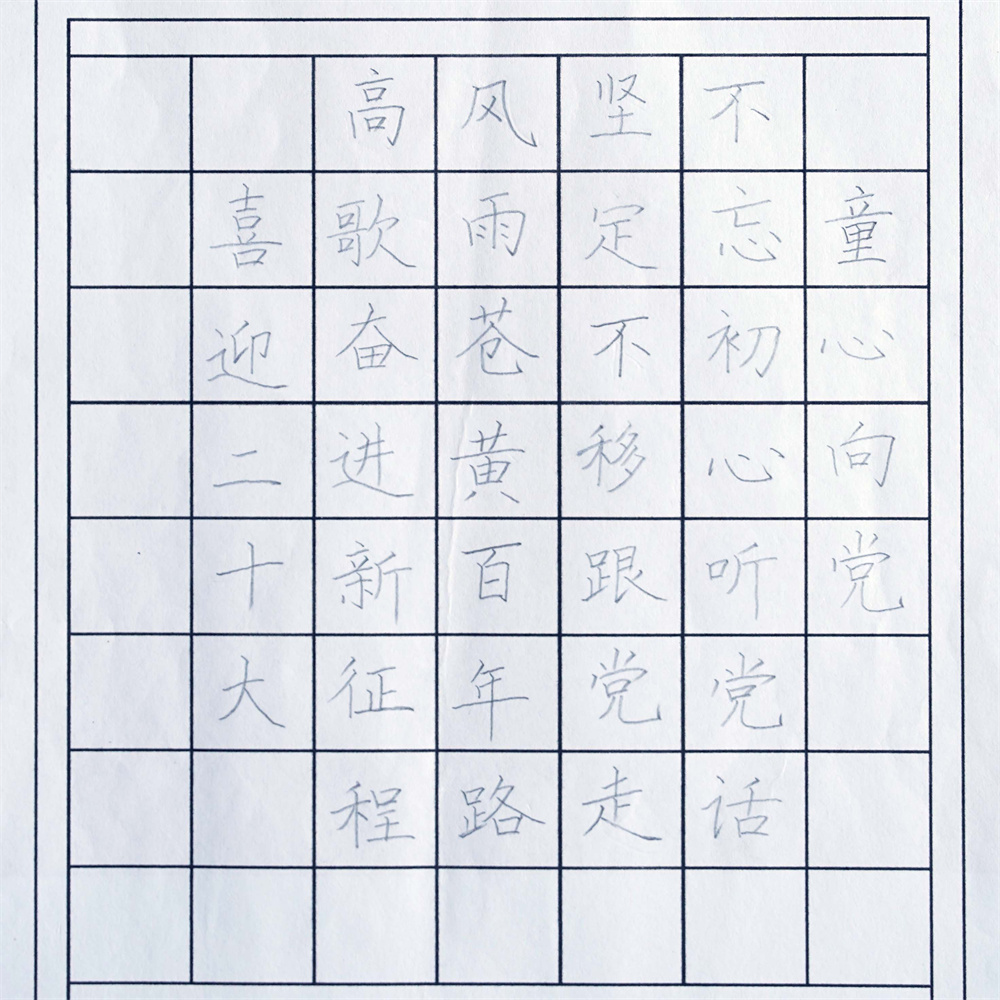 童心向党
不忘初心听党话
坚定不移跟党走
风雨苍黄百年路
高歌奋进新征程
喜迎二十大